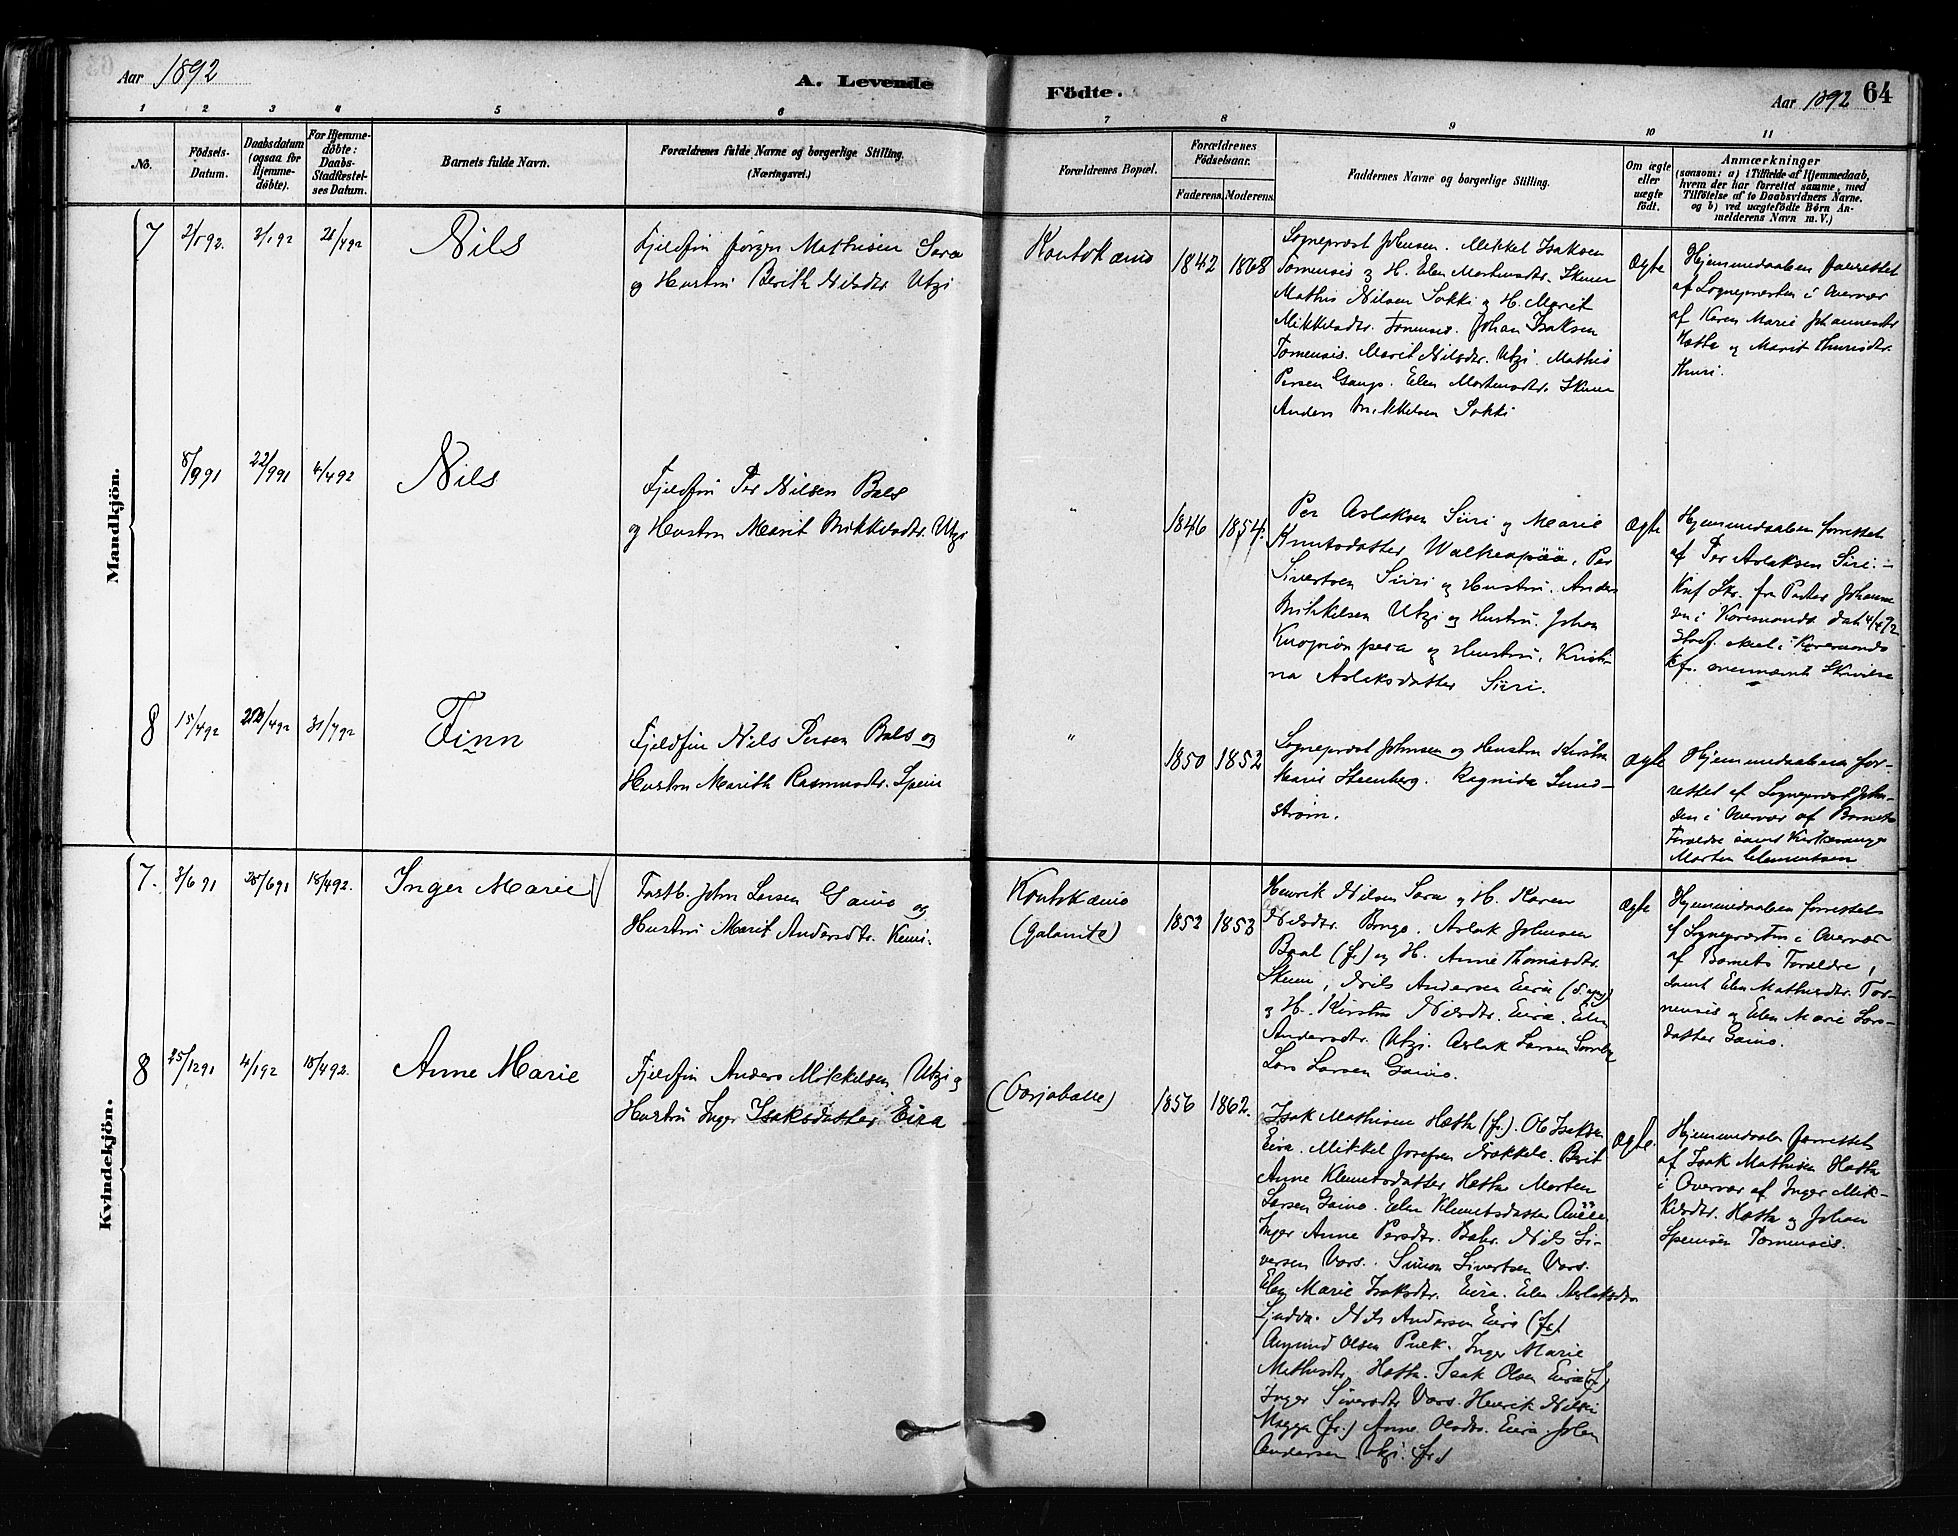 Aar 1892
A. Levende
Födte.
Aar 1892
64
1 2 3 4 5 6 7 8 9 10 11
No.
Födsels-Datum.
Daabsdatum (ogsaa for Hjemmedöbte).
For Hjemmedöbte: Daabs-Stadfæstelses Datum.
Barnets fulde Navn.
Forældrenes fulde Navne og borgerlige Stilling. (Næringsvei.)
Forældrenes Bopæl.
Forældrenes Födselsaar.
Faderens. Moderens.
Faddernes Navne og borgerlige Stilling.
Om ægte eller uægte födt.
Anmærkninger
(saasom: a) i Tilfælde af Hjemmedaab, hvem der har forrettet samme, med Tilföielse af to Daabsvidners Navne. og b) ved uægtefödte Börn Anmelderens Navn m. V.)
Mandkjön.
7 2/1 92. 2/1 92 21/4 92
Nils
Fjeldfin Jörgen Mathisen Sara
og Hustru Berith Nilsdtr Utzi
Koutokæino
1842 1868
Sogneprest Johnsen. Mikkel Isaksen
Tornensis og H. Elen Mortensdtr. Skum
Mathis Nilsen Sokki og H. Marit
Mikkelsdtr. Tornensis. Johan Isaksen
Tornensis. Marit Nilsdtr. Utzi. Mathis
Persen Gaup. Elen Mortensdtr. Skum
Anders Mikkelsen Sokki
Ægte
Hjemmedaaben forrettet
af Sognepresten i Overvær
af Karen Marie Johannesdtr
Hætta og Marit Thurisdtr.
Thuri.
8/9 91 22/9 91 4/4 92
Nils
Fjeldfin Per Nilsen Bals
og Hustru Marit Mikkelsdtr. Utzi
"
1846 1854.
Per Aslaksen Siiri og Marie
Knutsdatter Walkeapää, Per
Sivertsen Siiri og Hustru. Anders
Mikkelsen Utzi og Hustru. Johan
Kuopionpera og Hustru, Kristina
Aslaksdatter Siiri.
Ægte
Hjemmedaaben forrettet
af Per Aslaksen Siiri.
i Karesuando dat. 4/4 92
Stadf. skeet i Karesuando
8 15/4 92 31/7 92
Finn
Fjeldfin Nils Persen Bals og
Hustru Marith Rasmusdtr. Spein
"
1850 1852
Sogneprest Johnsen og Hustru
Marie Steenberg. Ragnida Sundström.
Ægte
Hjemmedaaben forrettet
af Sogneprest Johnsen
i Overvær af Barnets
Forældre samt Kirkesanger
Morten Clementsen
Kvindekjön.
7. 3/6 91 28/6 91 18/4 92.
Inger Marie
Fastb. John Larsen Gaino og
Hustru Marit Andersdtr. Kemi.
Koutokæino
(Galanito)
1852 1853
Henrik Nilsen Sara og H. Karen
Nilsdtr. Bongo. Aslak Johnsen
Baal (fr.) og H. Anne Thomasdtr.
Skum, Nils Andersen Eira
og H. Kirsten Nilsdtr. Eira. Elen
Andersdtr. Utzi. Aslak Larsen
Lars Larsen Gaino.
Ægte
Hjemmedaaben forrettet
af Sognepresten i Overvær
af Barnets Forældre,
samt Elen Mathisdtr. Tornensis
og Elen Marie Larsdatter
Gaino.
8 25/12 91 4/1 92 18/4 92.
Anne Marie
Fjeldfin Anders Mikkelsen Utzi og
Hustru Inger Isaksdatter Eira
1856 1862.
Isak Mathisen Hætta (fr.). Ole Isaksen
Eira. Mikkel Josefsen Näkkele. Berit
Anne Klemetsdatter Hætta Morten
Larsen Gaino. Elen Klemetsdatter
Inger Anne Persdtr. Bahr. Nils Siversen
Vars. Simon Sivertsen Vars.
Elen Marie Isaksdtr. Eira. Elen Aslaksdtr.
Nils Andersen Eira (fr.)
Amund Olsen Pulk. Inger Marie
Mathisdtr. Hætta. Isak Olsen Eira (fr.)
Inger Siversdtr. Vars. Henrik Nilsen
Magga (fr.) Anne Olsdtr. Eira John
Andersen Utzi (fr.)
Ægte.
Hjemmedaaben forrettet
af Isak Mathisen Hætta
i Overvær af Inger Mikkelsdtr.
Hætta og Johan
Tornensis.